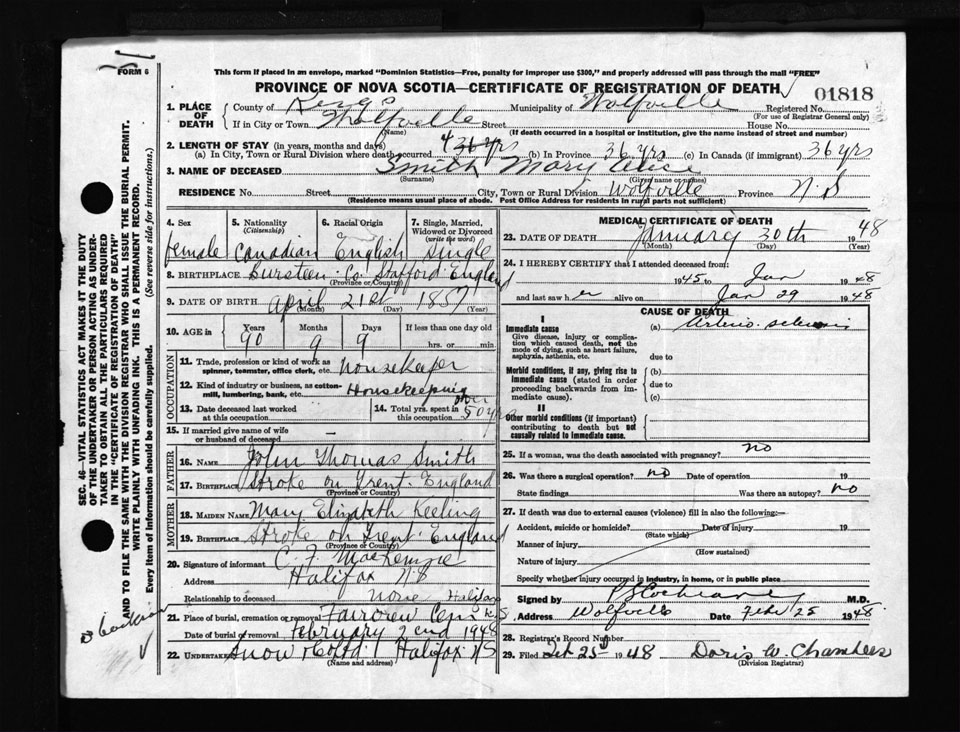 FORM 6
This form if placed in an envelope, marked "Dominion Statistics—Free, penalty for improper use $300," and properly addressed will pass through the mail "FREE"
PROVINCE OF NOVA SCOTIA—CERTIFICATE OF REGISTRATION OF DEATH
01818
1. PLACE OF DEATH
County of Kings Municipality of Wolfville Registered No.
(For use of Registrar General only)
If in City or Town Wolfville Street House No.
(Name) (If death occurred in a hospital or institution, give the name instead of street and number)
2. LENGTH OF STAY (in years, months and days)
(a) In City, Town or Rural Division where death occurred 36 yrs (b) In Province 36 yrs (c) In Canada (if immigrant) 36 yrs
3. NAME OF DECEASED Smith Mary
(Surname) (Given name or names)
RESIDENCE No. Street City, Town or Rural Division Wolfville Province N.S
(Residence means usual place of abode. Post Office Address for residents in rural parts not sufficient)
4. Sex female
5. Nationality (Citizenship) Canadian
6. Racial Origin English
7. Single, Married, Widowed or Divorced (write the word) Single
8. BIRTHPLACE Co. Stafford England
(Province or Country)
9. DATE OF BIRTH April 21st 1857
(Month) (Day) (Year)
10. AGE in Years Months Days If less than one day old
90 9 9 hrs. or min.
OCCUPATION
11. Trade, profession or kind of work as spinner, teamster, office clerk, etc. Housekeeper
12. Kind of industry or business, as cotton-mill, lumbering, bank, etc. Housekeeping
13. Date deceased last worked at this occupation
14. Total yrs. spent in this occupation over 50 yrs
15. If married give name of wife or husband of deceased —
FATHER
16. NAME John Thomas Smith
17. BIRTHPLACE Stroke on Trent England
(Province or Country)
MOTHER
18. MAIDEN NAME Mary Elizabeth Keeling
19. BIRTHPLACE Stroke on Trent England
(Province or Country)
20. Signature of informant C. F. MacKenzie
Address Halifax NS
Relationship to deceased none
21. Place of burial, cremation or removal Fairview Cem Halifax N.S
Date of burial or removal February 2nd 1948
22. UNDERTAKER Snow & Co Ltd Halifax NS
(Name and address)
MEDICAL CERTIFICATE OF DEATH
23. DATE OF DEATH January 30th 1948
(Month) (Day) (Year)
24. I HEREBY CERTIFY that I attended deceased from:
1945 to Jan 1948
and last saw her alive on Jan 29 1948
CAUSE OF DEATH
I
Immediate cause (a) Arterio-
Give disease, injury or complication which caused death, not the mode of dying, such as heart failure, asphyxia, asthenia, etc. due to
Morbid conditions, if any, giving rise to immediate cause (stated in order proceeding backwards from immediate cause). (b)
due to
(c)
II
Other morbid conditions (if important) contributing to death but not causally related to immediate cause.
25. If a woman, was the death associated with pregnancy? no
26. Was there a surgical operation? no Date of operation 19
State findings Was there an autopsy? no
27. If death was due to external causes (violence) fill in also the following:—
Accident, suicide or homicide? Date of injury 19
(State which)
Manner of injury
(How sustained)
Nature of injury
Specify whether injury occurred in industry, in home, or in public place
Signed by Cochrane M.D.
Address Wolfville Date 25 1948
28. Registrar's Record Number
29. Filed Feb 25th 1948 Doris W. Chambers
(Division Registrar)
SEC. 46—VITAL STATISTICS ACT MAKES IT THE DUTY
OF THE UNDERTAKER OR PERSON ACTING AS UNDER-
TAKER TO OBTAIN ALL THE PARTICULARS REQUIRED
IN THE "CERTIFICATE OF REGISTRATION OF DEATH"
AND TO FILE THE SAME WITH THE DIVISION REGISTRAR WHO SHALL ISSUE THE BURIAL PERMIT.
WRITE PLAINLY WITH UNFADING INK. THIS IS A PERMANENT RECORD.
Every item of information should be carefully supplied. (See reverse side for instructions.)